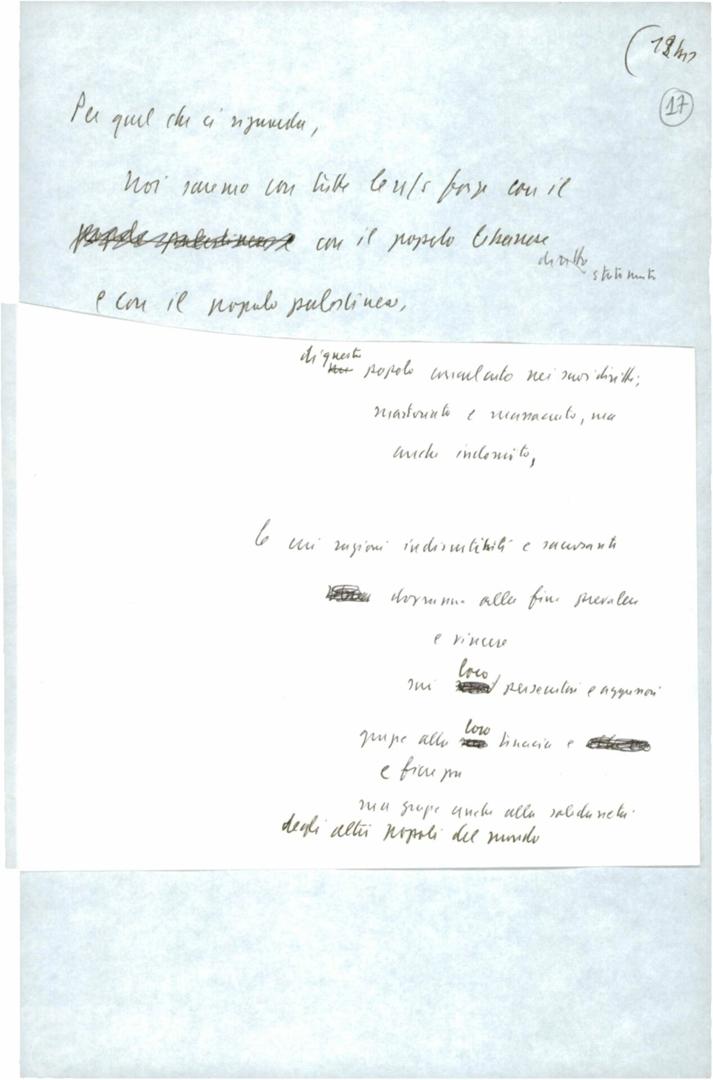 (18bis
17
Per quel che ci riguarda,
Noi saremo con tutte le n/s forze con il
popolo palestinese con il popolo libanese
diritto
statunità
e con il popolo palestinese,
di questo
popolo conculcato nei suoi diritti;
martoriato e massacrato, ma
anche indomito,
le cui ragioni indiscutibili e sacrosante
dovranno alla fine prevalere
e vincere
loro
sui persecutori e aggressori
loro
grazie alla tenacia e
e fierezza
ma grazie anche alla solidarietà
degli altri popoli del mondo